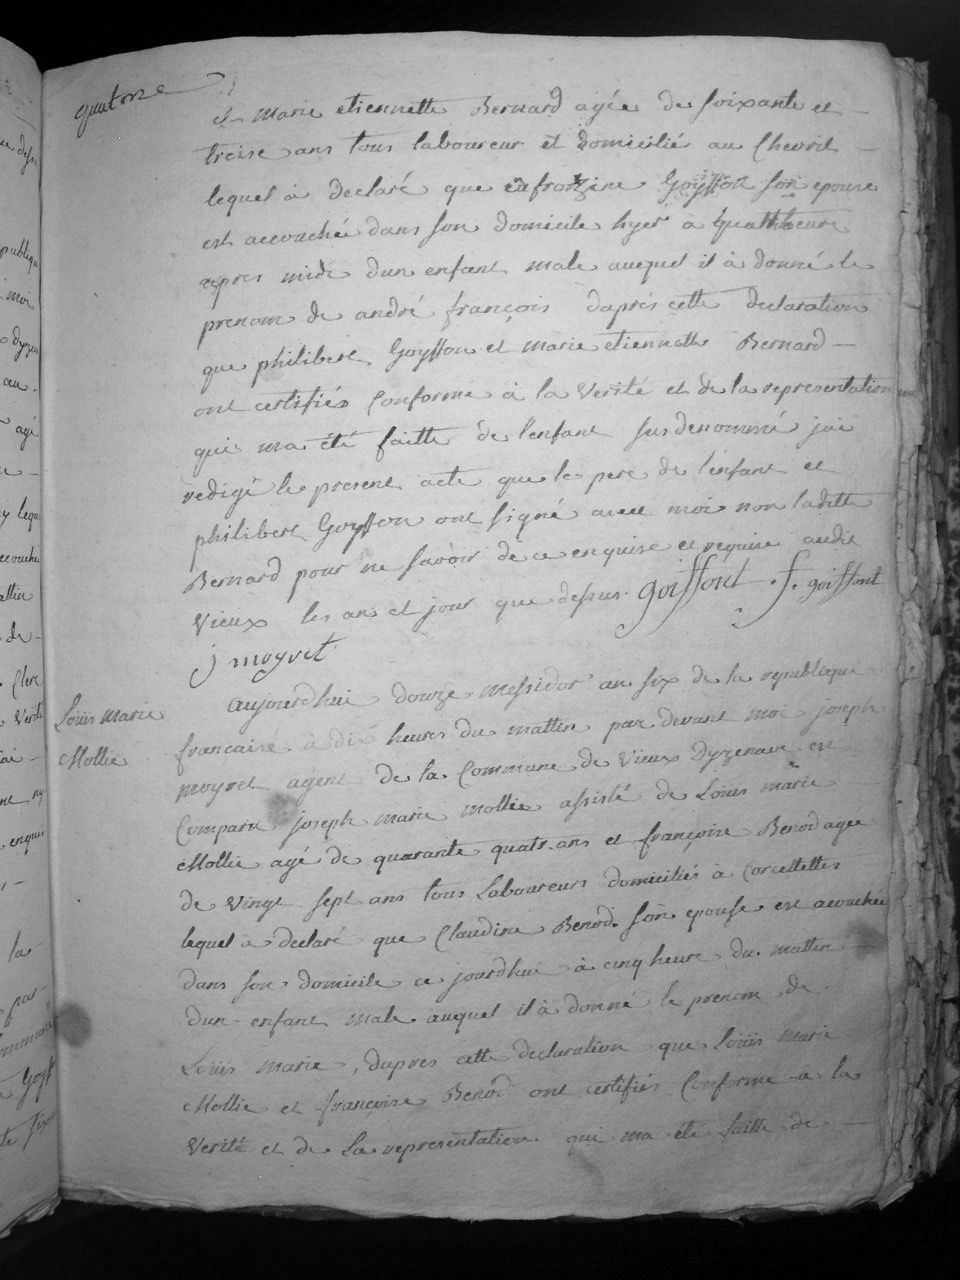 quatorze
et marie etiennette Bernard agée de soixante et
treise ans tous laboureur et domiciliés au Chevril
lequel à declaré que eufrozine Goyffon son epouse
est accouché dans son domicile hyer à quatt heure
apres midi dun enfant male auquel il à donné le
prenom de andré françois daprés cette declaration
que philibert Goyffon et marie etiennette Bernard
ont certifiés Conforme à la Verité et de la representation
qui ma été faitte de l'enfant susdenommé jai
redigé le present acte que le pere de l'enfant et
philibert Goyffon ont signé avec moi non laditte
Bernard pour ne savoir de ce enquise et requise audit
Vieux les an et jour que dessus. goiffont . f. goiffont
j moyret
Louis marie
Mollie
aujourdhui douze messidor an six de la republique
francaise à dix heures du mattin par devant moi joseph
moyret agent de la Commune de Vieux Dyzenave est
Comparu joseph marie mollie assisté de Louis marie
Mollie agé de quarante quatr ans et françoise Benod agee
de vingt sept ans tous Laboureurs domiciliés à Corcelettes
lequel à declaré que Claudine Benod. son epouse est acouchée
dans son domicile ce jourdhui à cinq heure du mattin
dun enfant male auquel il à donné le prenom de
Louis marie, dapres cette declaration que Louis marie
Mollie et françoise Benod ont certifiés Conforme à la
Verité et de La representation qui ma été faitte de